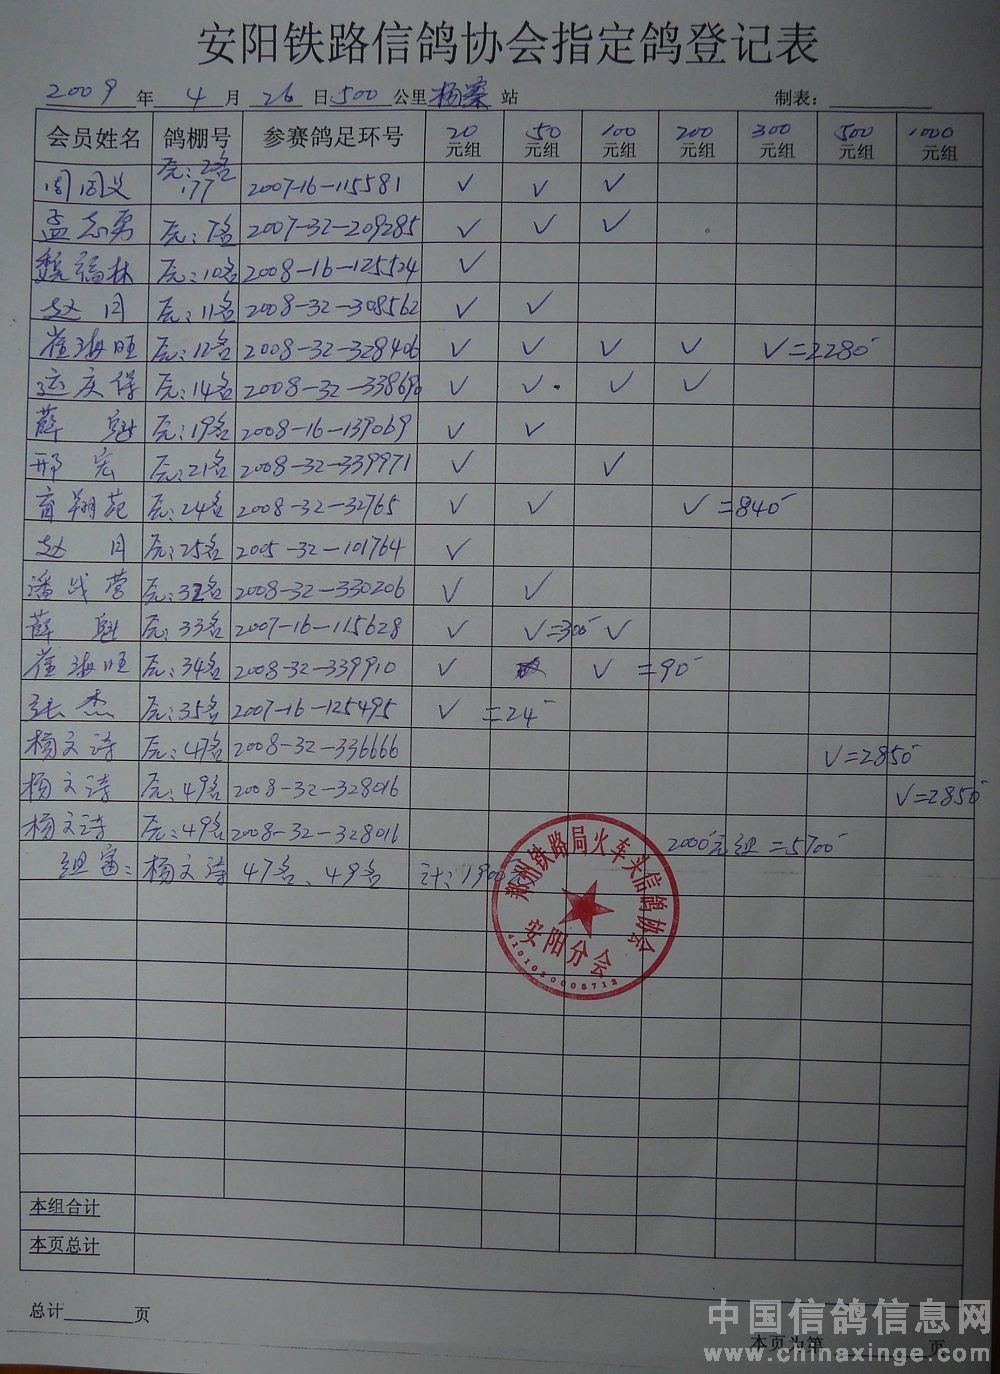 安阳铁路信鸽协会指定鸽登记表
2009 年 4 月 26 日 500 公里 杨寨 站 制表：
会员姓名 鸽棚号 参赛鸽足环号 20元组 50元组 100元组 200元组 300元组 500元组 1000元组
周国义 2名 177 2007-16-115581 ✓ ✓ ✓
孟志勇 7名 2007-32-209285 ✓ ✓ ✓
魏福林 10名 2008-16-125524 ✓
赵月 11名 2008-32-308562 ✓ ✓
崔海旺 12名 2008-32-328406 ✓ ✓ ✓ ✓ ✓=2280
庆得 14名 2008-32-338690 ✓ ✓ ✓ ✓
薛魁 19名 2008-16-139069 ✓ ✓
邢宏 21名 2008-32-339971 ✓ ✓
翔苑 24名 2008-32-32765 ✓ ✓ ✓=840
赵月 25名 2005-32-101764 ✓
潘战营 32名 2008-32-330206 ✓ ✓
薛魁 33名 2007-16-115628 ✓ ✓=300 ✓
崔海旺 34名 2008-32-339910 ✓ ✓ =90
张杰 35名 2007-16-125495 ✓ =24
杨文涛 47名 2008-32-336666 ✓=2850
杨文涛 49名 2008-32-328016 ✓=2850
杨文涛 49名 2008-32-328016 2000元组=5700
组：杨文涛 47名、49名 计：1900元
郑州铁路局火车头信鸽协会
安阳分会
4101050005712
本组合计
本页总计
总计 页
本页为第 页
中国信鸽信息网
www.chinaxinge.com